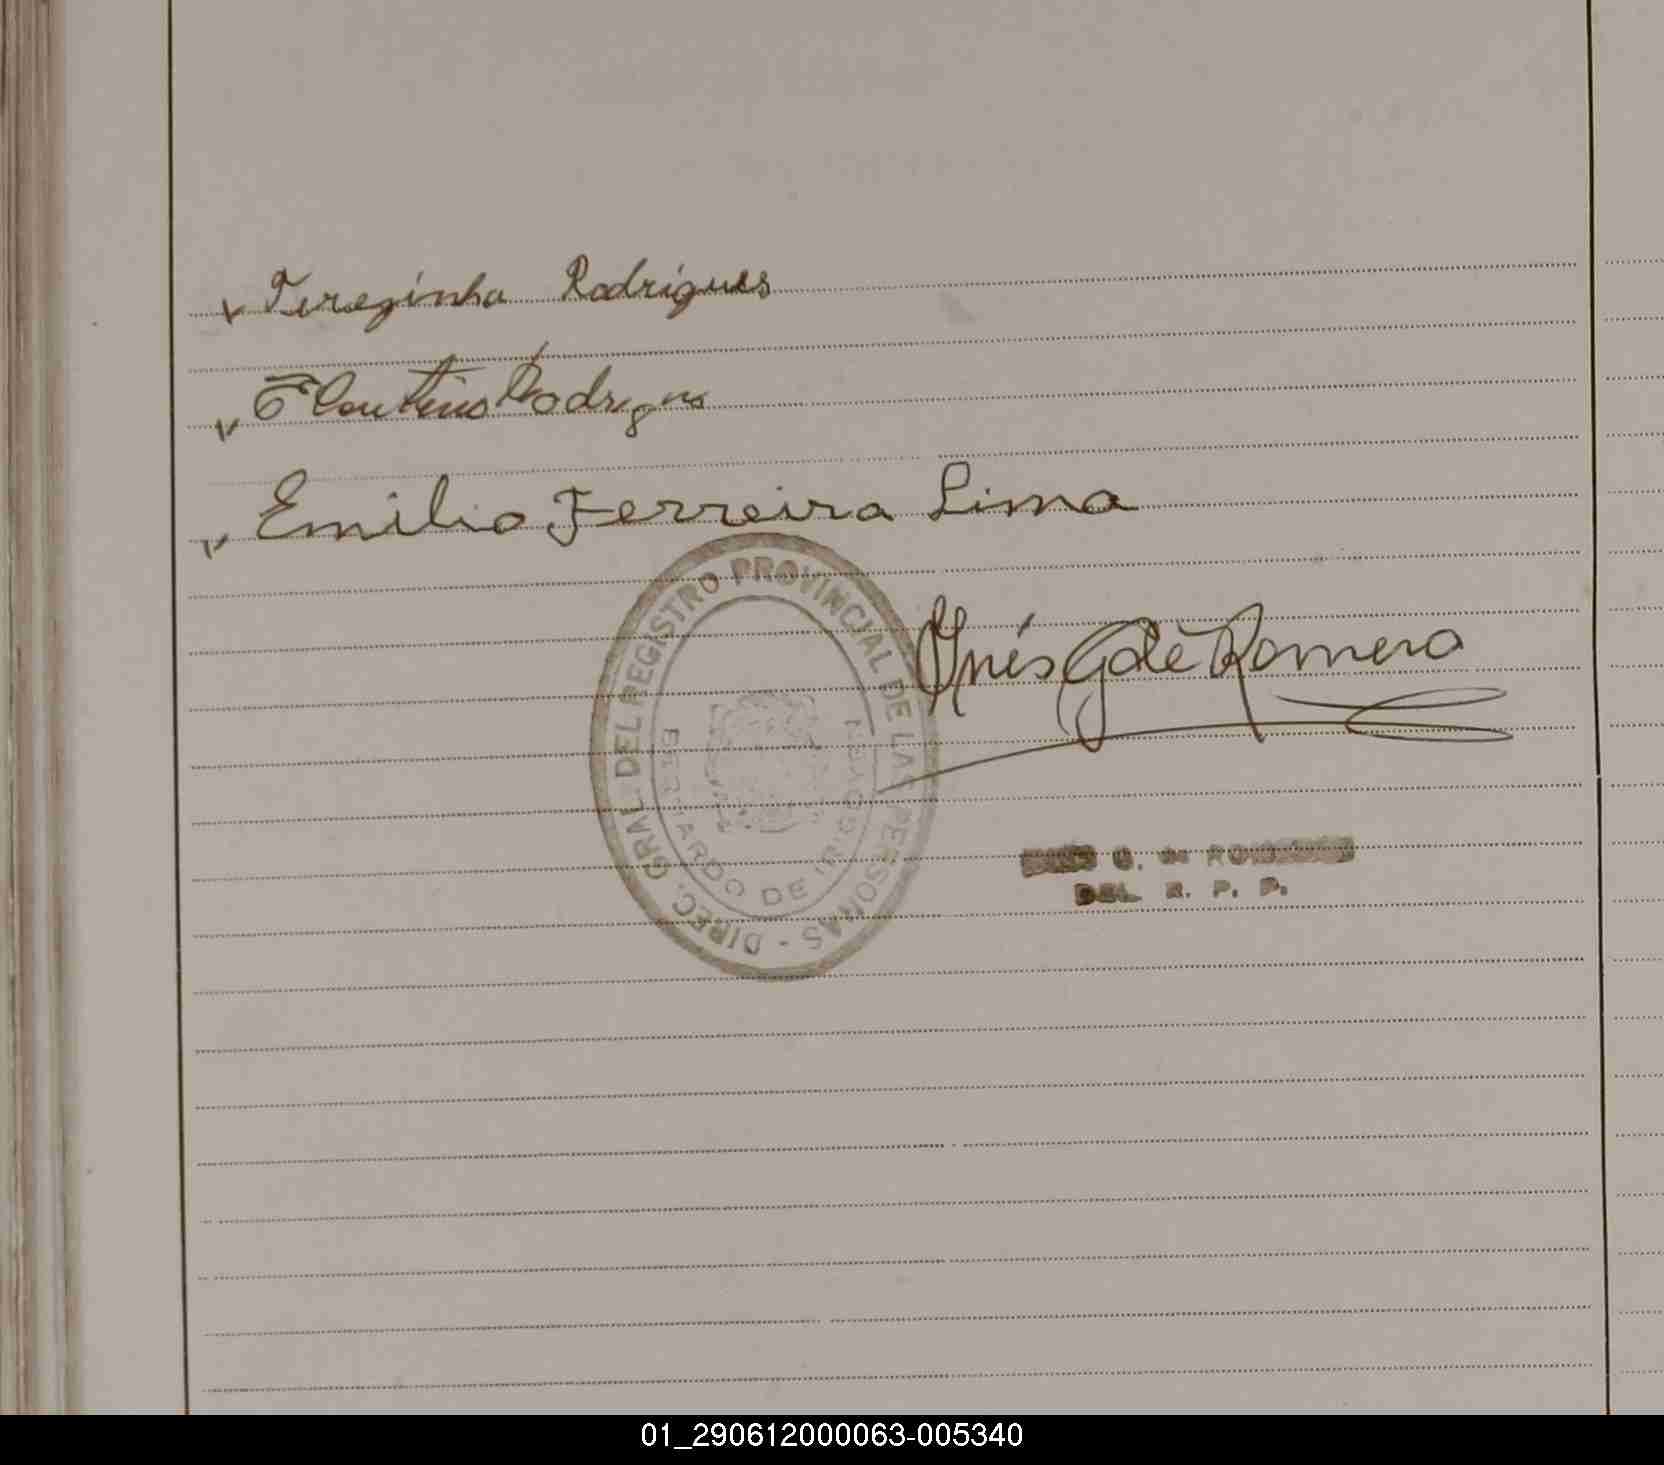 Terezinha Rodrigues
Rodrigues
Emilio Ferreira Lima
DIREC. GRAL. DEL REGISTRO PROVINCIAL DE LAS PERSONAS -
BERNARDO DE IRIGOYEN
MISIONES
Inés G de Romero
INES G. de ROMERO
DEL. R. P. P.
01_290612000063-005340